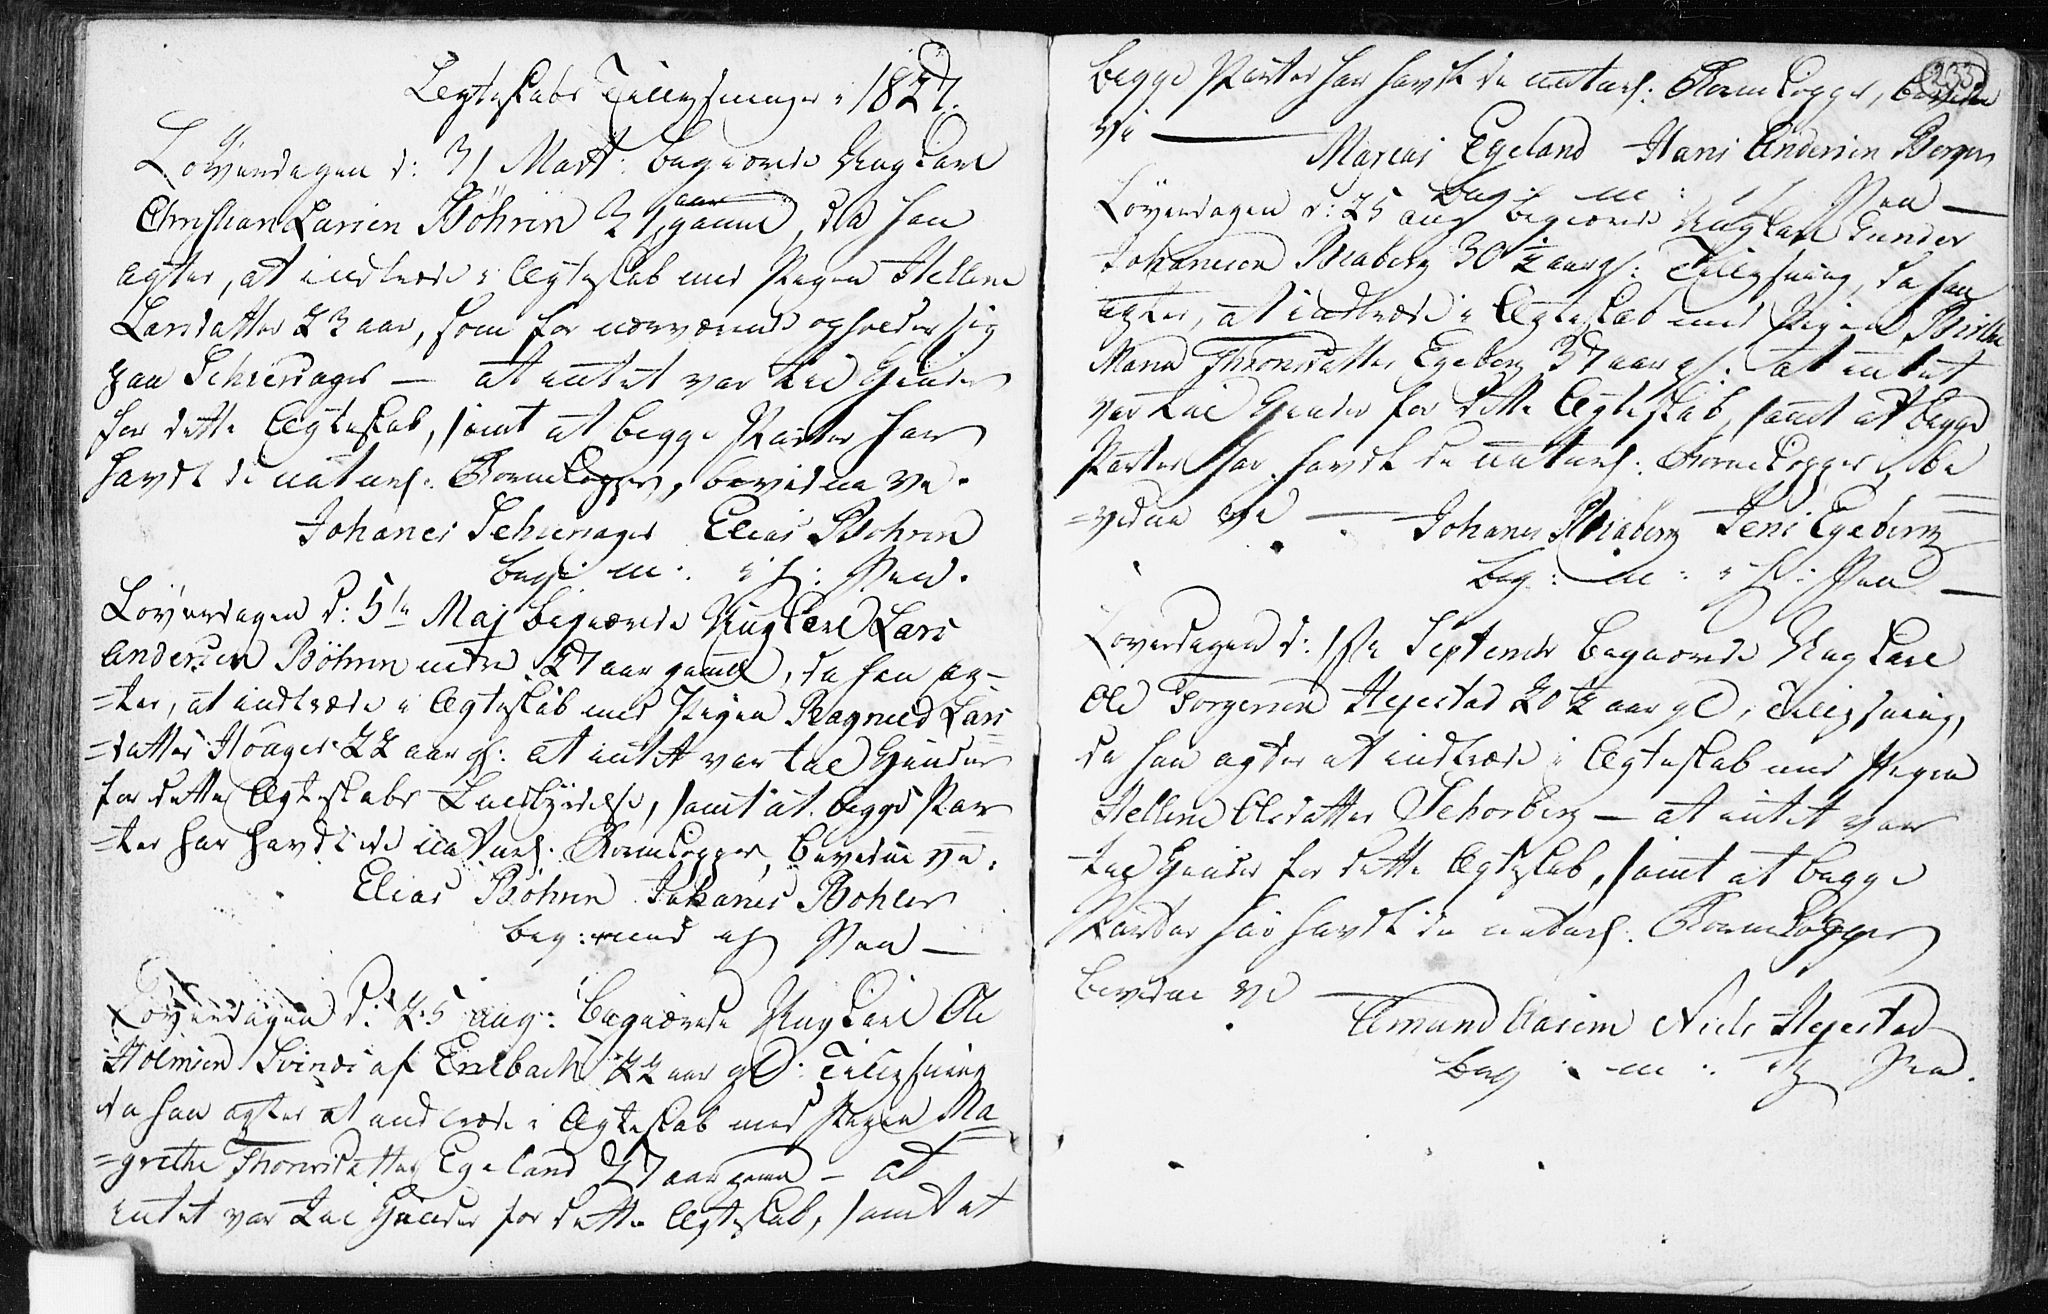 Ægteskabs Tillysninger i 1827.
Løverdagen d: 31 Mart: begiærede Ungkarl
Christian Larsen Böhren 21 aar gammel, da han
agter, at indtræde i Ægteskab med Pigen Hellene
Larsdatter 23 aar, som for nærværende opholder sig
paa Schiersager — at intet var til Hinder
for dette Ægteskab, samt at begge Parter har
havdt de naturl: Børnekopper, bevidne vi.
Johanes Schiersager Elias Bohren
beg: m: i h: Pen.
Löverdagen d: 5te Maj begiærede Ungkarl Lars
Andersen Böhren nedre 27 aar gammel, da han ag-
=ter, at indtræde i Ægteskab med Pigen Ragnild Lars
=datter Hönager 22 aar gl: at intet var til Hinder
for dette Ægteskabs Fuldbyrdelse, samt at begge Par
=ter har havdt de naturl: Børnekopper, bevidne vi.
Elias Böhren Johanes Bohler
beg: med h Pen —
Löverdagen d: 25 aug: begiærede Ungkarl Ole
Holmsen Svinds af Enebach 22 aar gl: Tillysning
da han agter at indtræde i Ægteskab med Pigen Ma
=grethe Thoresdatter Egeland 27 aar gaml — at
intet var til Hinder for dette Ægteskab, samt at
233
begge Parter har havdt de naturl: Børnekopper, bevidne
vi — Marcus Egeland Hans Andersen Berger
beg: m: i h Pen —
Löverdagen d: 25 aug begiærede Ungkarl Gunder
Johannesen Braaberg 30 ½ aar gl: Tillysning, da han
agter, at indtræde i Ægteskab med Pigen Birthe
Maria Thronsdatter Egeberg 37 aar gl: at intet
var til Hinder for dette Ægteskab, samt at begge
Parter har havdt de naturl: Børnekopper, be
=vidne vi — Johanes Braaberg Jens Egeberg
beg: m: i h: Pen —
Löverdagen d: 1ste Septembr begiærede Ungkarl
Ole Torgersen Hejestad 20 ½ aar gl, Tillysning,
da han agter at indtræde i Ægteskab med Pigen
Hellene Olsdatter Schorberg — at intet var
til Hinder for dette Ægteskab, samt at begge
Parter har havdt de naturl: Børnekopper
bevidne vi — Amund Aasen Niels Hejestad
beg: m: i h Pen.